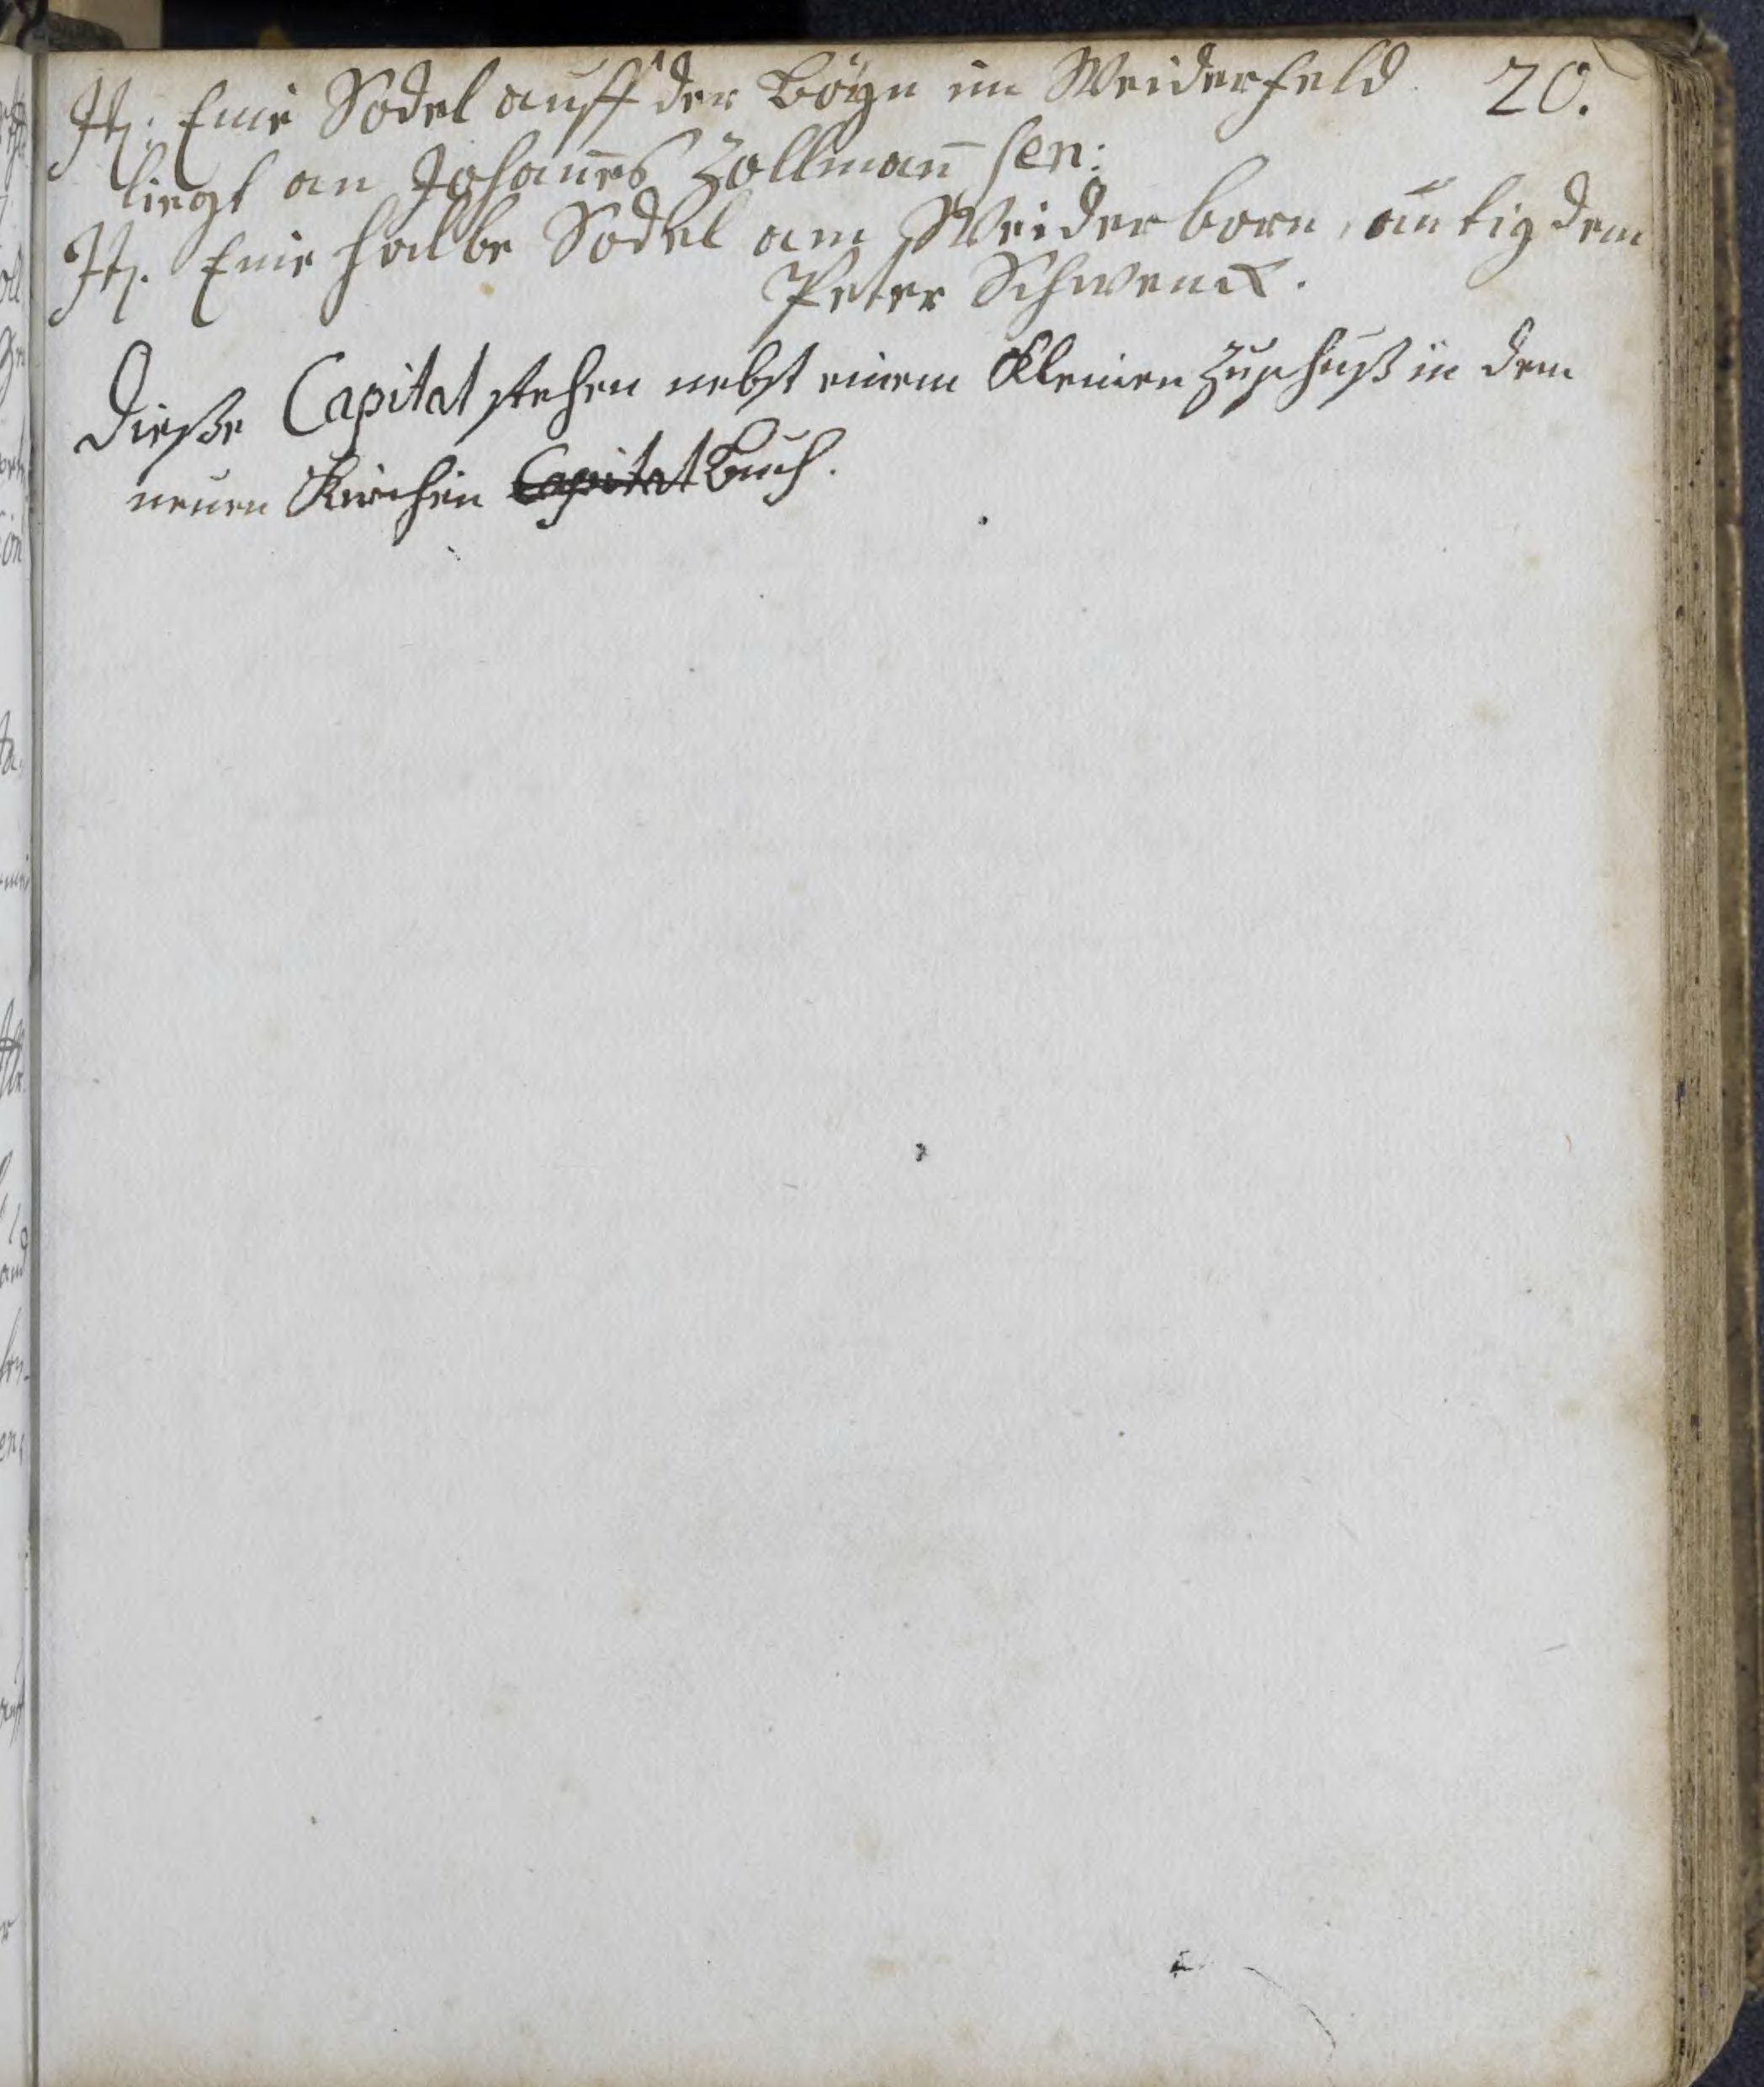 It. Eine Sodel auff der Bögn im Weiderfeld 20.
liegt an Johan̅es Zollman̅ sen:
It. Eine halbe Sodel am Weiderborn, dem
Peter Schwenck.
Dieße Capital stehen nebst einem Kleinen Zuschuß in dem
neuen Kirchen Capital Buch.